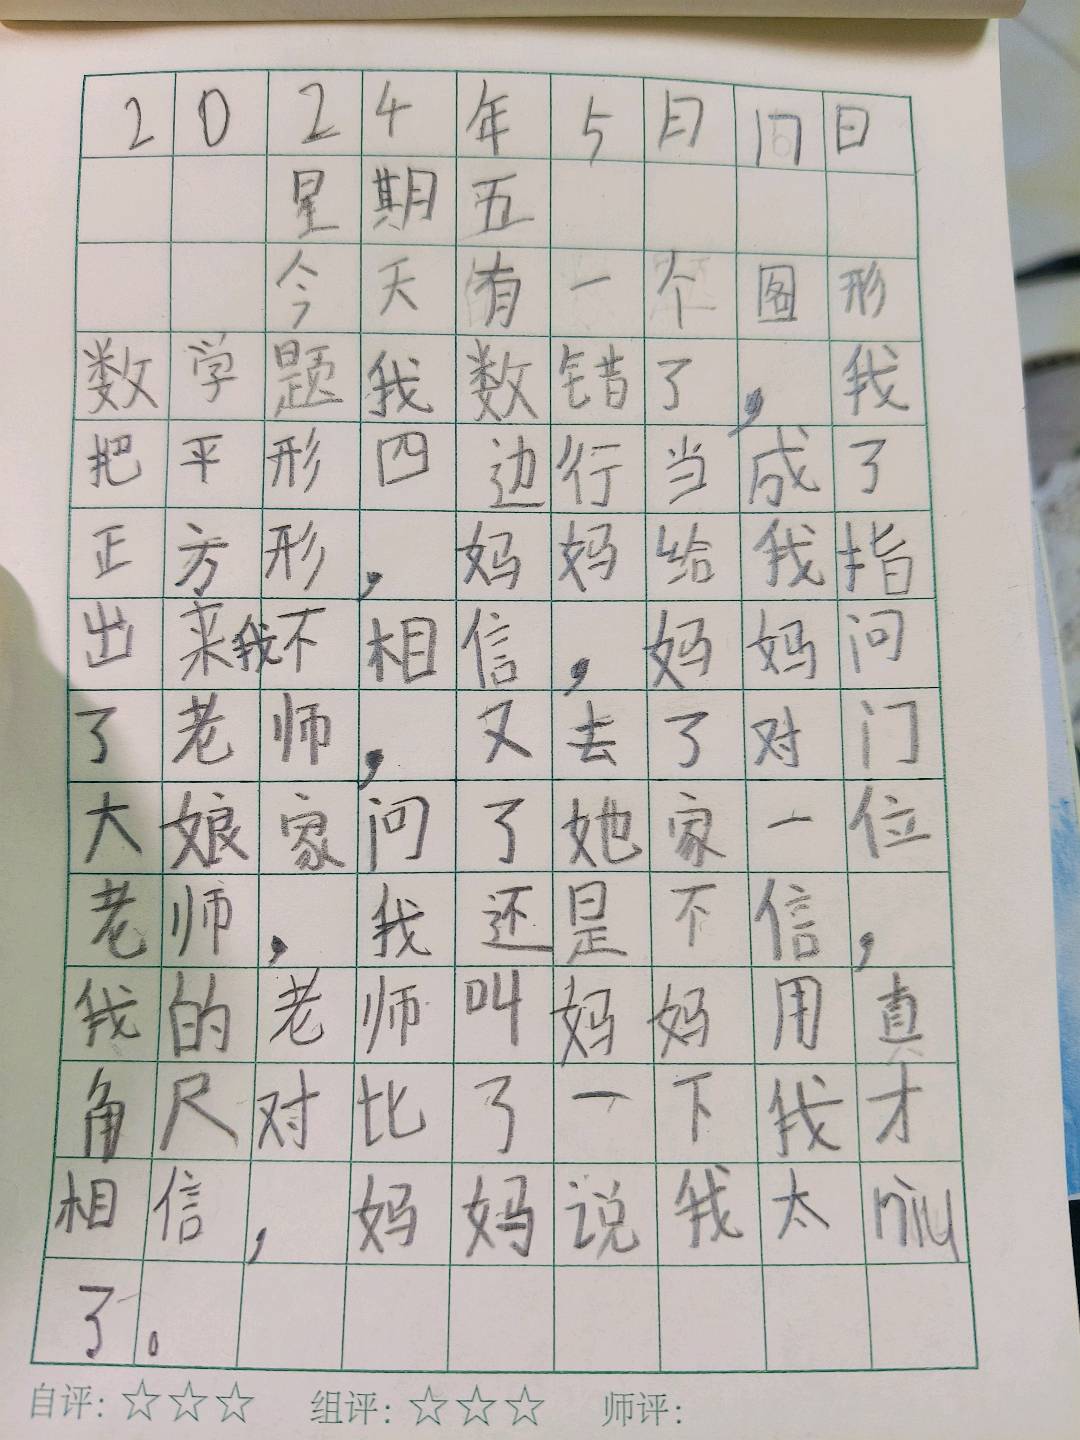 2024年5月17日
星期五
今天有一个图形
数学题我数错了,我
把平形四边行当成了
正方形,妈妈给我指
出来我不相信,妈妈问
了老师,又去了对门
大娘家问了她家一位
老师,我还是不信,
我的老师叫妈妈用真
角尺对比了一下我才
相信,妈妈说我太niu
了。
自评:☆☆☆ 组评:☆☆☆ 师评: